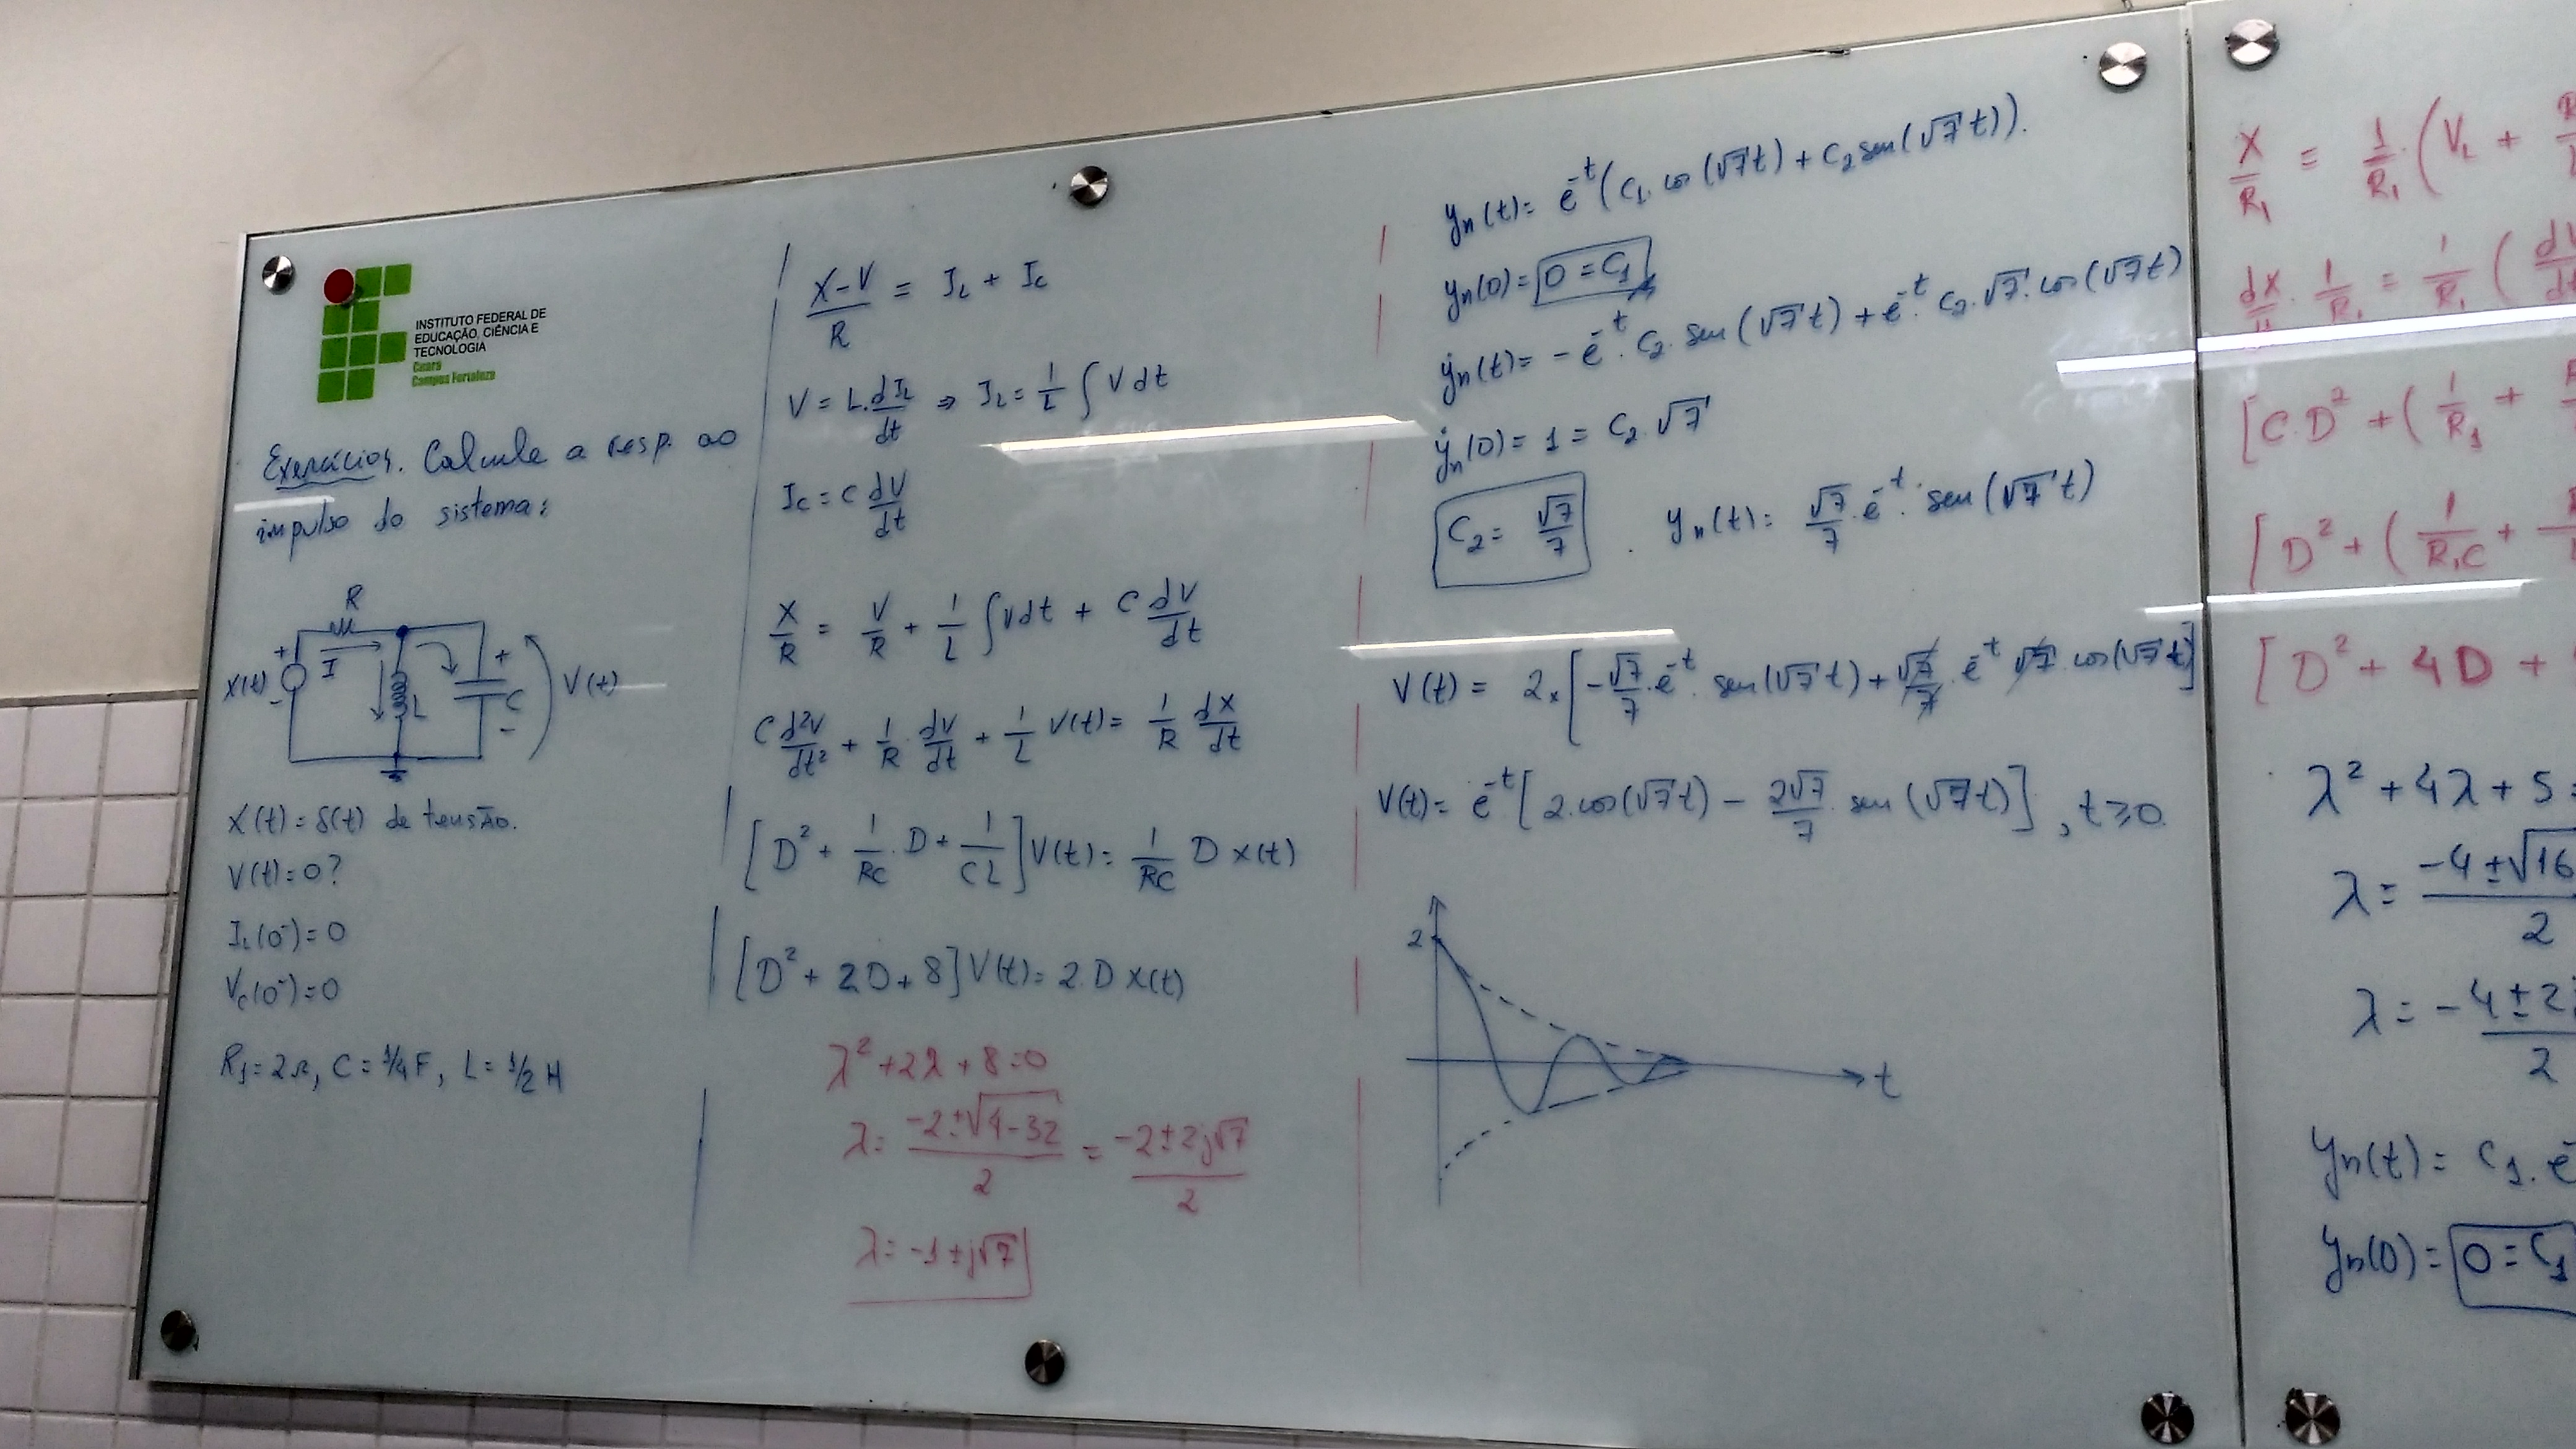 INSTITUTO FEDERAL DE
EDUCAÇÃO, CIÊNCIA E
TECNOLOGIA
Ceará
Campus Fortaleza
Exercícios. Calcule a resp. ao
impulso do sistema:
R
+
X(t)
-
I
L
+
C
-
V(t)
X(t) = δ(t) de tensão.
V(t) = 0?
I_L(0⁻) = 0
V_C(0⁻) = 0
R₁ = 2Ω, C = 1/4 F, L = 1/2 H
(X-V)/R = I_L + I_C
V = L.dI_L/dt ⇒ I_L = 1/L ∫ V dt
I_C = C dV/dt
X/R = V/R + 1/L ∫ V dt + C dV/dt
C d²V/dt² + 1/R . dV/dt + 1/L V(t) = 1/R dX/dt
[D² + 1/RC . D + 1/CL] V(t) = 1/RC D X(t)
[D² + 2D + 8] V(t) = 2.D X(t)
λ² + 2λ + 8 = 0
λ = (-2 ± √(4-32))/2 = (-2 ± 2j√7)/2
λ = -1 ± j√7
yₙ(t) = e⁻ᵗ (C₁. cos(√7 t) + C₂ sen(√7 t)).
yₙ(0) = 0 = C₁
ẏₙ(t) = - e⁻ᵗ. C₂. sen(√7 t) + e⁻ᵗ. C₂. √7. cos(√7 t)
ẏₙ(0) = 1 = C₂. √7
C₂ = √7/7 . yₙ(t) = √7/7 . e⁻ᵗ. sen(√7 t)
V(t) = 2 x [-√7/7 . e⁻ᵗ. sen(√7 t) + √7/7 . e⁻ᵗ √7 cos(√7 t)]
V(t) = e⁻ᵗ [2.cos(√7 t) - 2√7/7 . sen(√7 t)], t ≥ 0
2
t
X/R₁ = 1/R₁ . (V_L +
dX/dt . 1/R₁ = 1/R₁ (
[C.D² + (1/R₁ +
[D² + (1/R₁C +
[D² + 4D +
λ² + 4λ + 5
λ = -4 ± √16
2
λ = -4 ± 2j
2
yₙ(t) = C₁. e
yₙ(0) = 0 = C₁